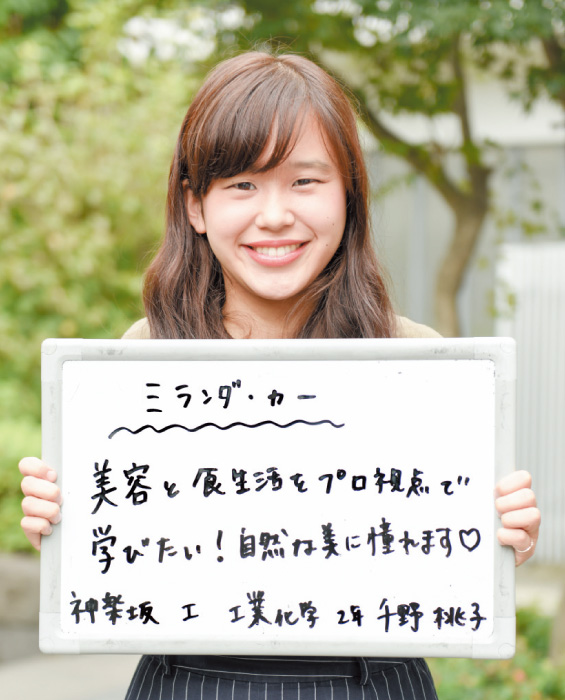 ミランダ・カー
美容と食生活をプロ視点で
学びたい！自然な美に憧れます♡
神楽坂 工 工業化学 2年 千野 桃子